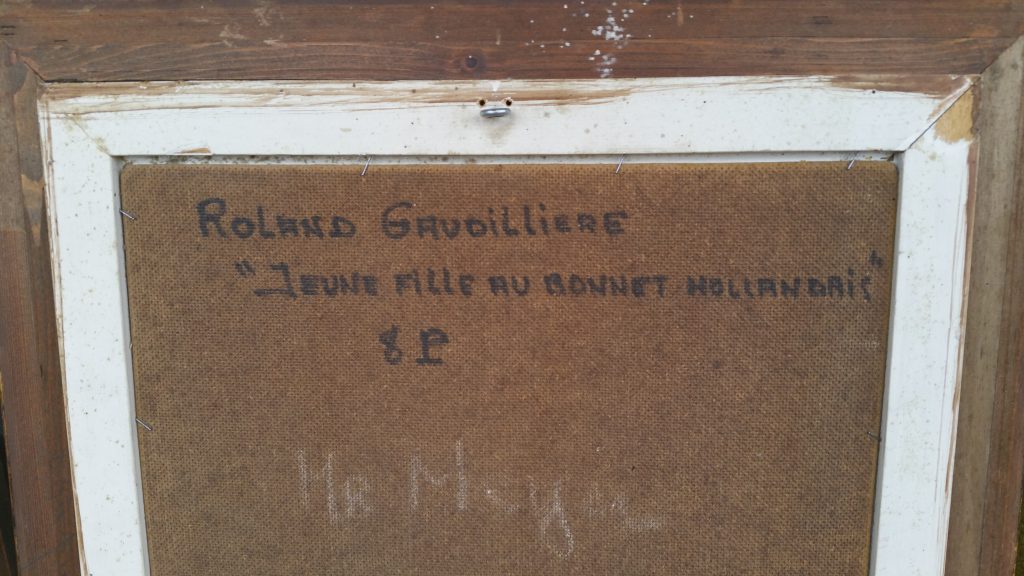 Roland Gaudilliere
"Jeune fille au bonnet hollandais"
8 P